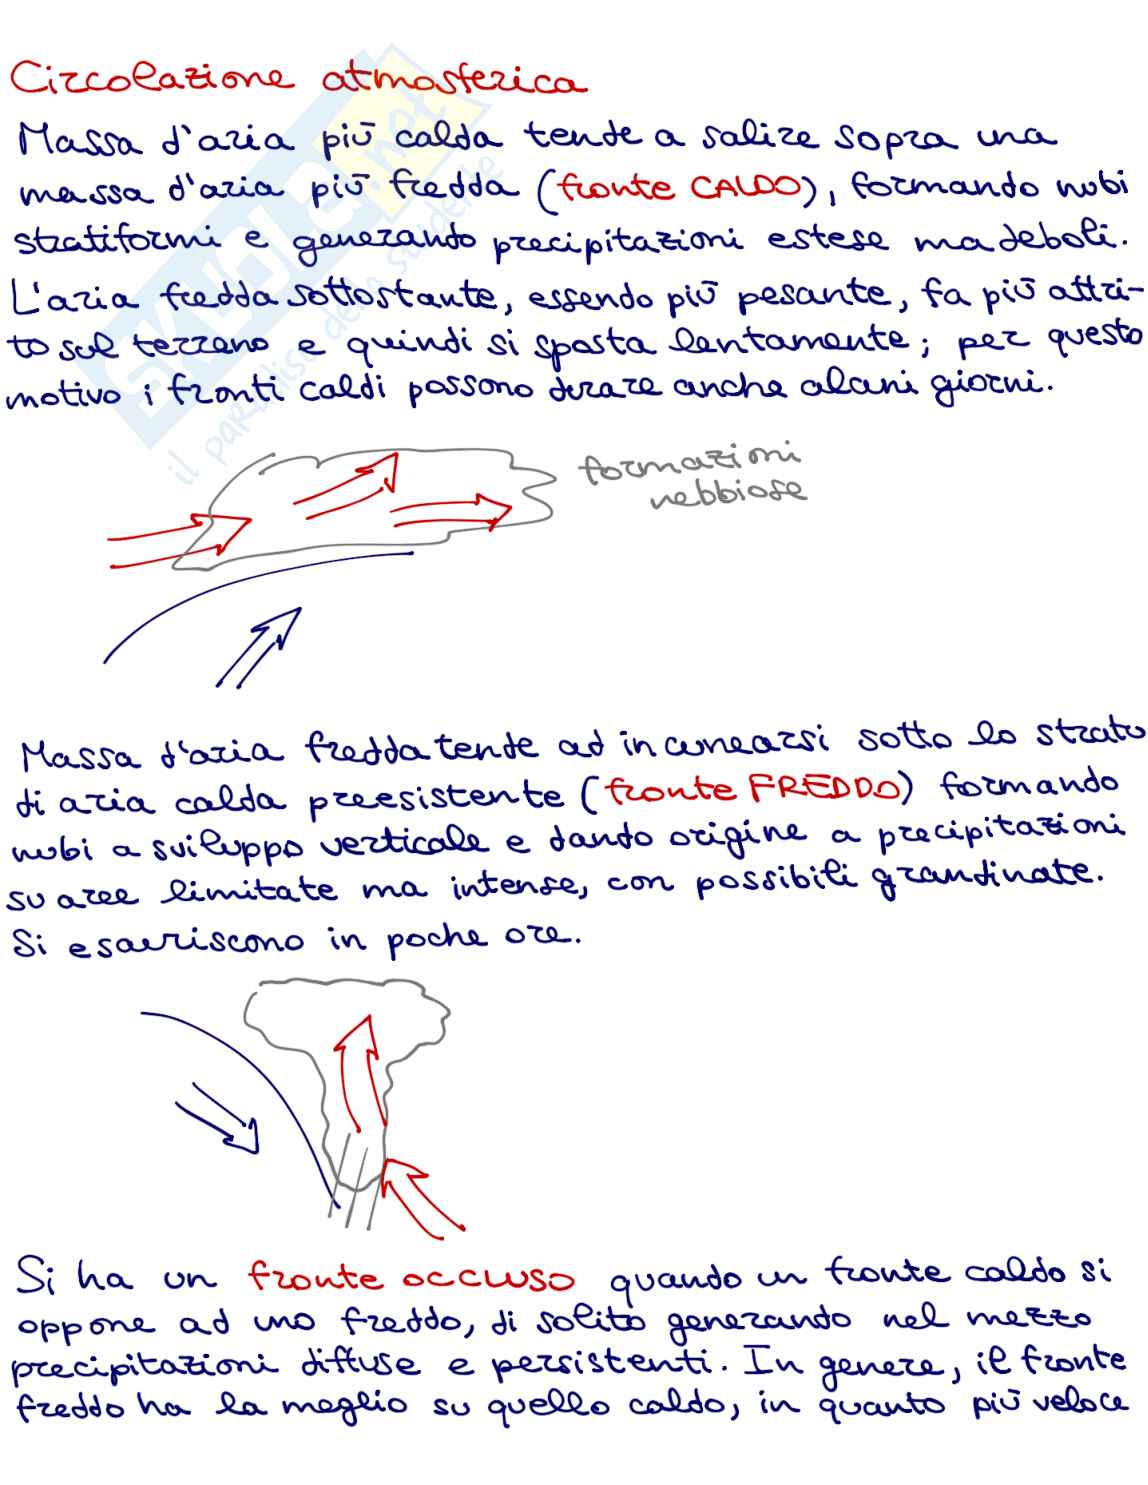 Circolazione atmosferica
Massa d'aria più calda tende a salire sopra una
massa d'aria più fredda (fronte CALDO), formando nubi
stratiformi e generando precipitazioni estese ma deboli.
L'aria fredda sottostante, essendo più pesante, fa più attri-
to sul terreno e quindi si sposta lentamente; per questo
motivo i fronti caldi possono durare anche alcuni giorni.
formazioni
nebbiose
Massa d'aria fredda tende ad incunearsi sotto lo strato
di aria calda preesistente (fronte FREDDO) formando
nubi a sviluppo verticale e dando origine a precipitazioni
su aree limitate ma intense, con possibili grandinate.
Si esauriscono in poche ore.
Si ha un fronte occluso quando un fronte caldo si
oppone ad uno freddo, di solito generando nel mezzo
precipitazioni diffuse e persistenti. In genere, il fronte
freddo ha la meglio su quello caldo, in quanto più veloce
SKUOLA.net
il paradiso dello studente